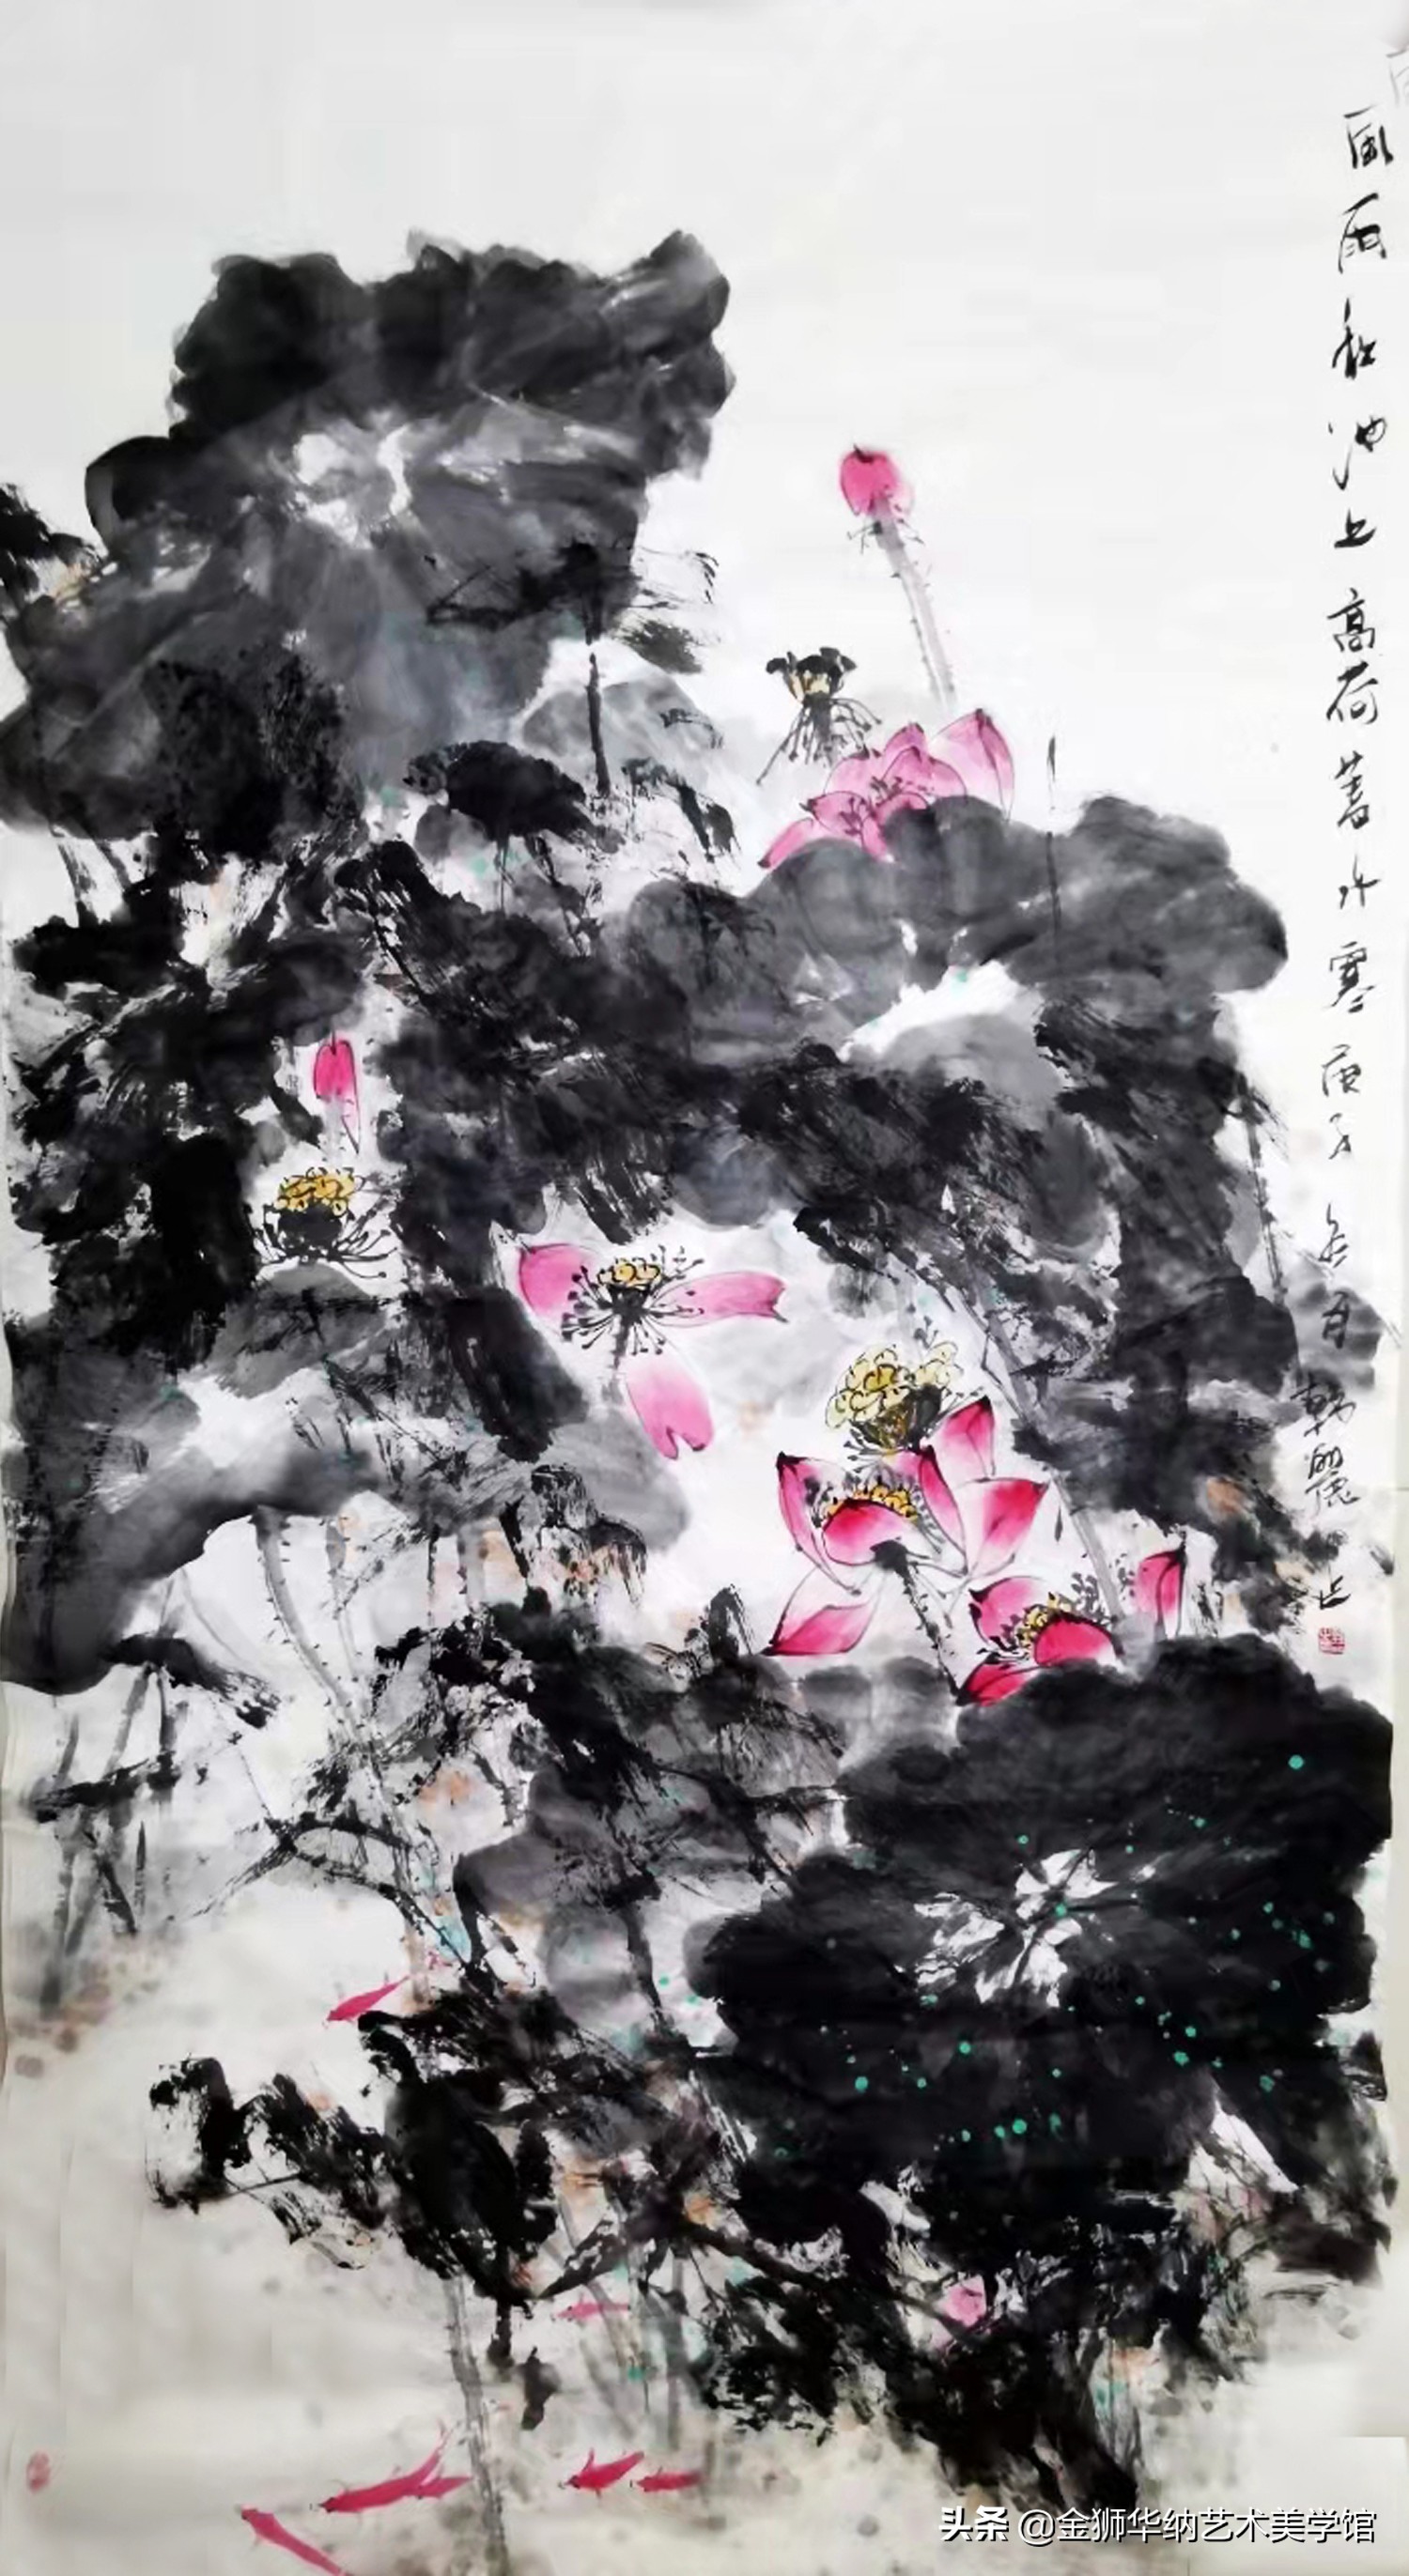 风雨秋池上高荷盖水寒庚子冬月韩丽
头条 @金狮华纳艺术美学馆